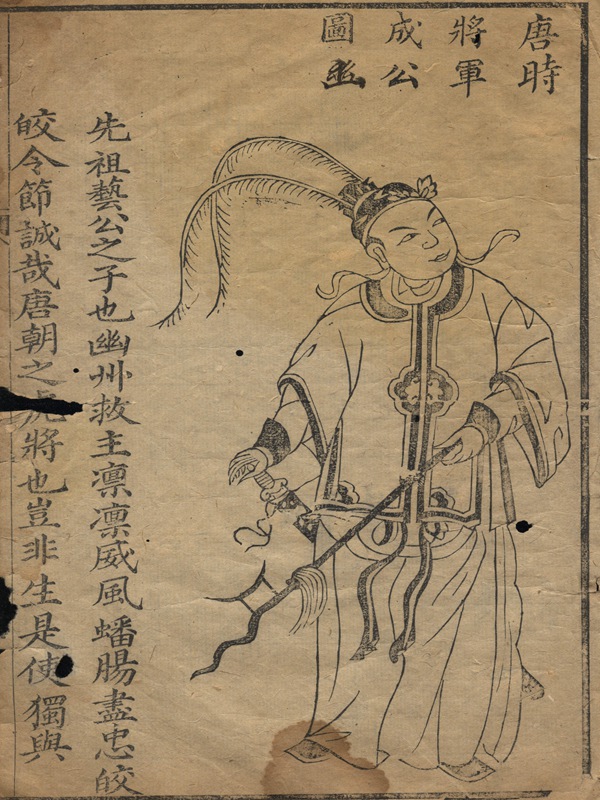 唐時
將軍
成公
圖
先祖藝公之子也幽州救主凛凛威風蟠腸盡忠皎
皎令節誠哉唐朝之虎將也豈非生是使獨與